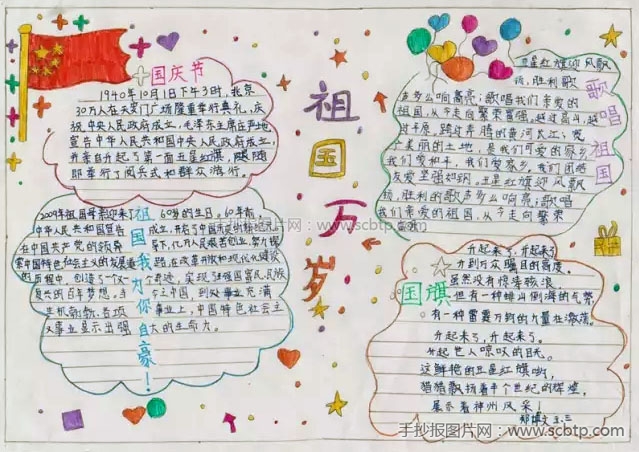 国庆节
1940年10月1日下午3时,北京
30万人在天安门广场隆重举行典礼,庆
祝中央人民政府成立,毛泽东主席庄严地
宣告中华人民共和国中央人民政府成立,
并亲自升起了第一面五星红旗,
即举行了阅兵式和群众游行。
祖国万岁
歌唱祖国
五星红旗迎风飘
扬,胜利歌
声多么响亮;歌唱我们亲爱的
祖国,从今走向繁荣富强。越过高山,越
过平原,跨过奔腾的黄河长江;宽
广美丽的土地,是我们可爱的家乡
我们爱和平,我们爱家乡,我们团结
友爱坚强如钢。五星红旗迎风飘
扬,胜利的歌声多么响亮;歌唱
我们亲爱的祖国,从今走向繁荣
富强
祖国我为你自豪!
2009年祖国母亲迎来了60岁的生日。60年前,
中华人民共和国宣告成立,
在中国共产党的领导下,亿万人民艰苦创业,努力探
索中国特色社会主义的发展道路,在改革开放和现代化建设
的历程中,创造了一个又一个奇迹,实现了强国富民民族
复兴的百年梦想。今日之中国,到处事业充满
生机勃勃,各项事业上,中国特色社会主
义事业显示出强大的生命力。
国旗
升起来了,升起来了,
升到万众瞩目的高度。
虽然没有惊涛骇浪,
但有一种排山倒海的气势
有一种雷霆万钧的力量在激荡。
升起来了,升起来了。
升起世人惊叹的目光。
这鲜艳的五星红旗哟,
猎猎飘扬着半个世纪的辉煌,
展示着神州风采!
手抄报图片网:www.scbtp.com
手抄报图片网:www.scbtp.com